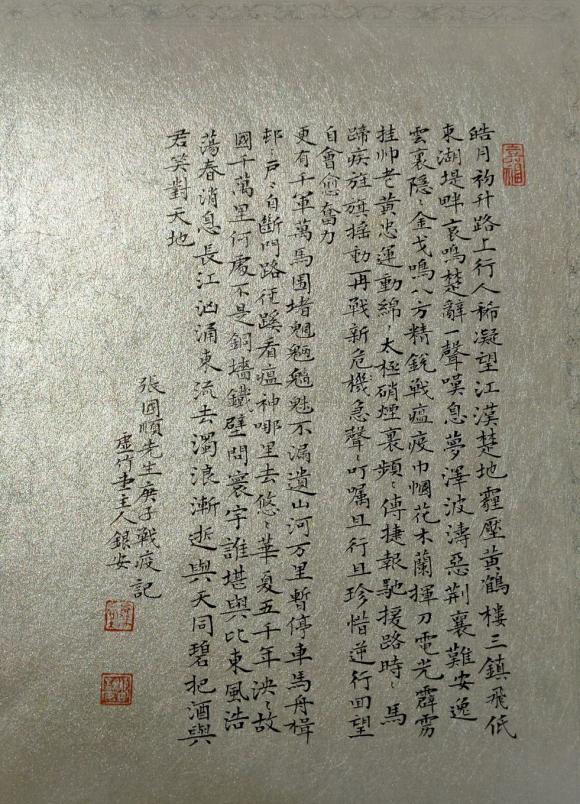 皓月初升路上行人稀凝望江漢楚地霾壓黃鶴樓三鎮飛低
東湖堤畔哀鳴楚辭一聲嘆息夢澤波濤惡荆襄難安逸
雲裏隱隱金戈鳴八方精銳戰瘟疫巾幗花木蘭揮刀電光霹雳
挂帅老黃忠運動綿綿太極硝煙裏頻頻傳捷報馳援路時時馬
蹄疾旌旗搖動再戰新危機急聲聲叮嘱且行且珍惜逆行回望
自會愈奮力
更有千軍萬馬圍堵魑魅魍魎不漏遺山河万里暫停車馬舟楫
邨户户自斷門路徑蹊看瘟神哪里去悠悠華夏五千年泱泱故
國千萬里何處不是銅墻鐵壁問寰宇誰堪與比東風浩
蕩春消息長江汹涌東流去濁浪漸逝與天同碧把酒與
君笑對天地
張國順先生庚子戰疫記
虛竹堂主人銀安